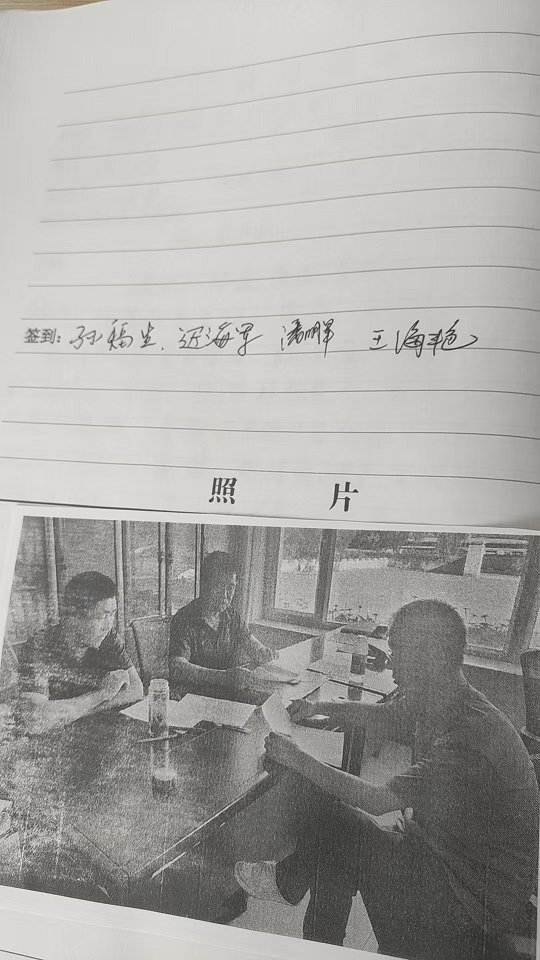 签到：孙福生、迟海军 潘明军 王海艳
照 片